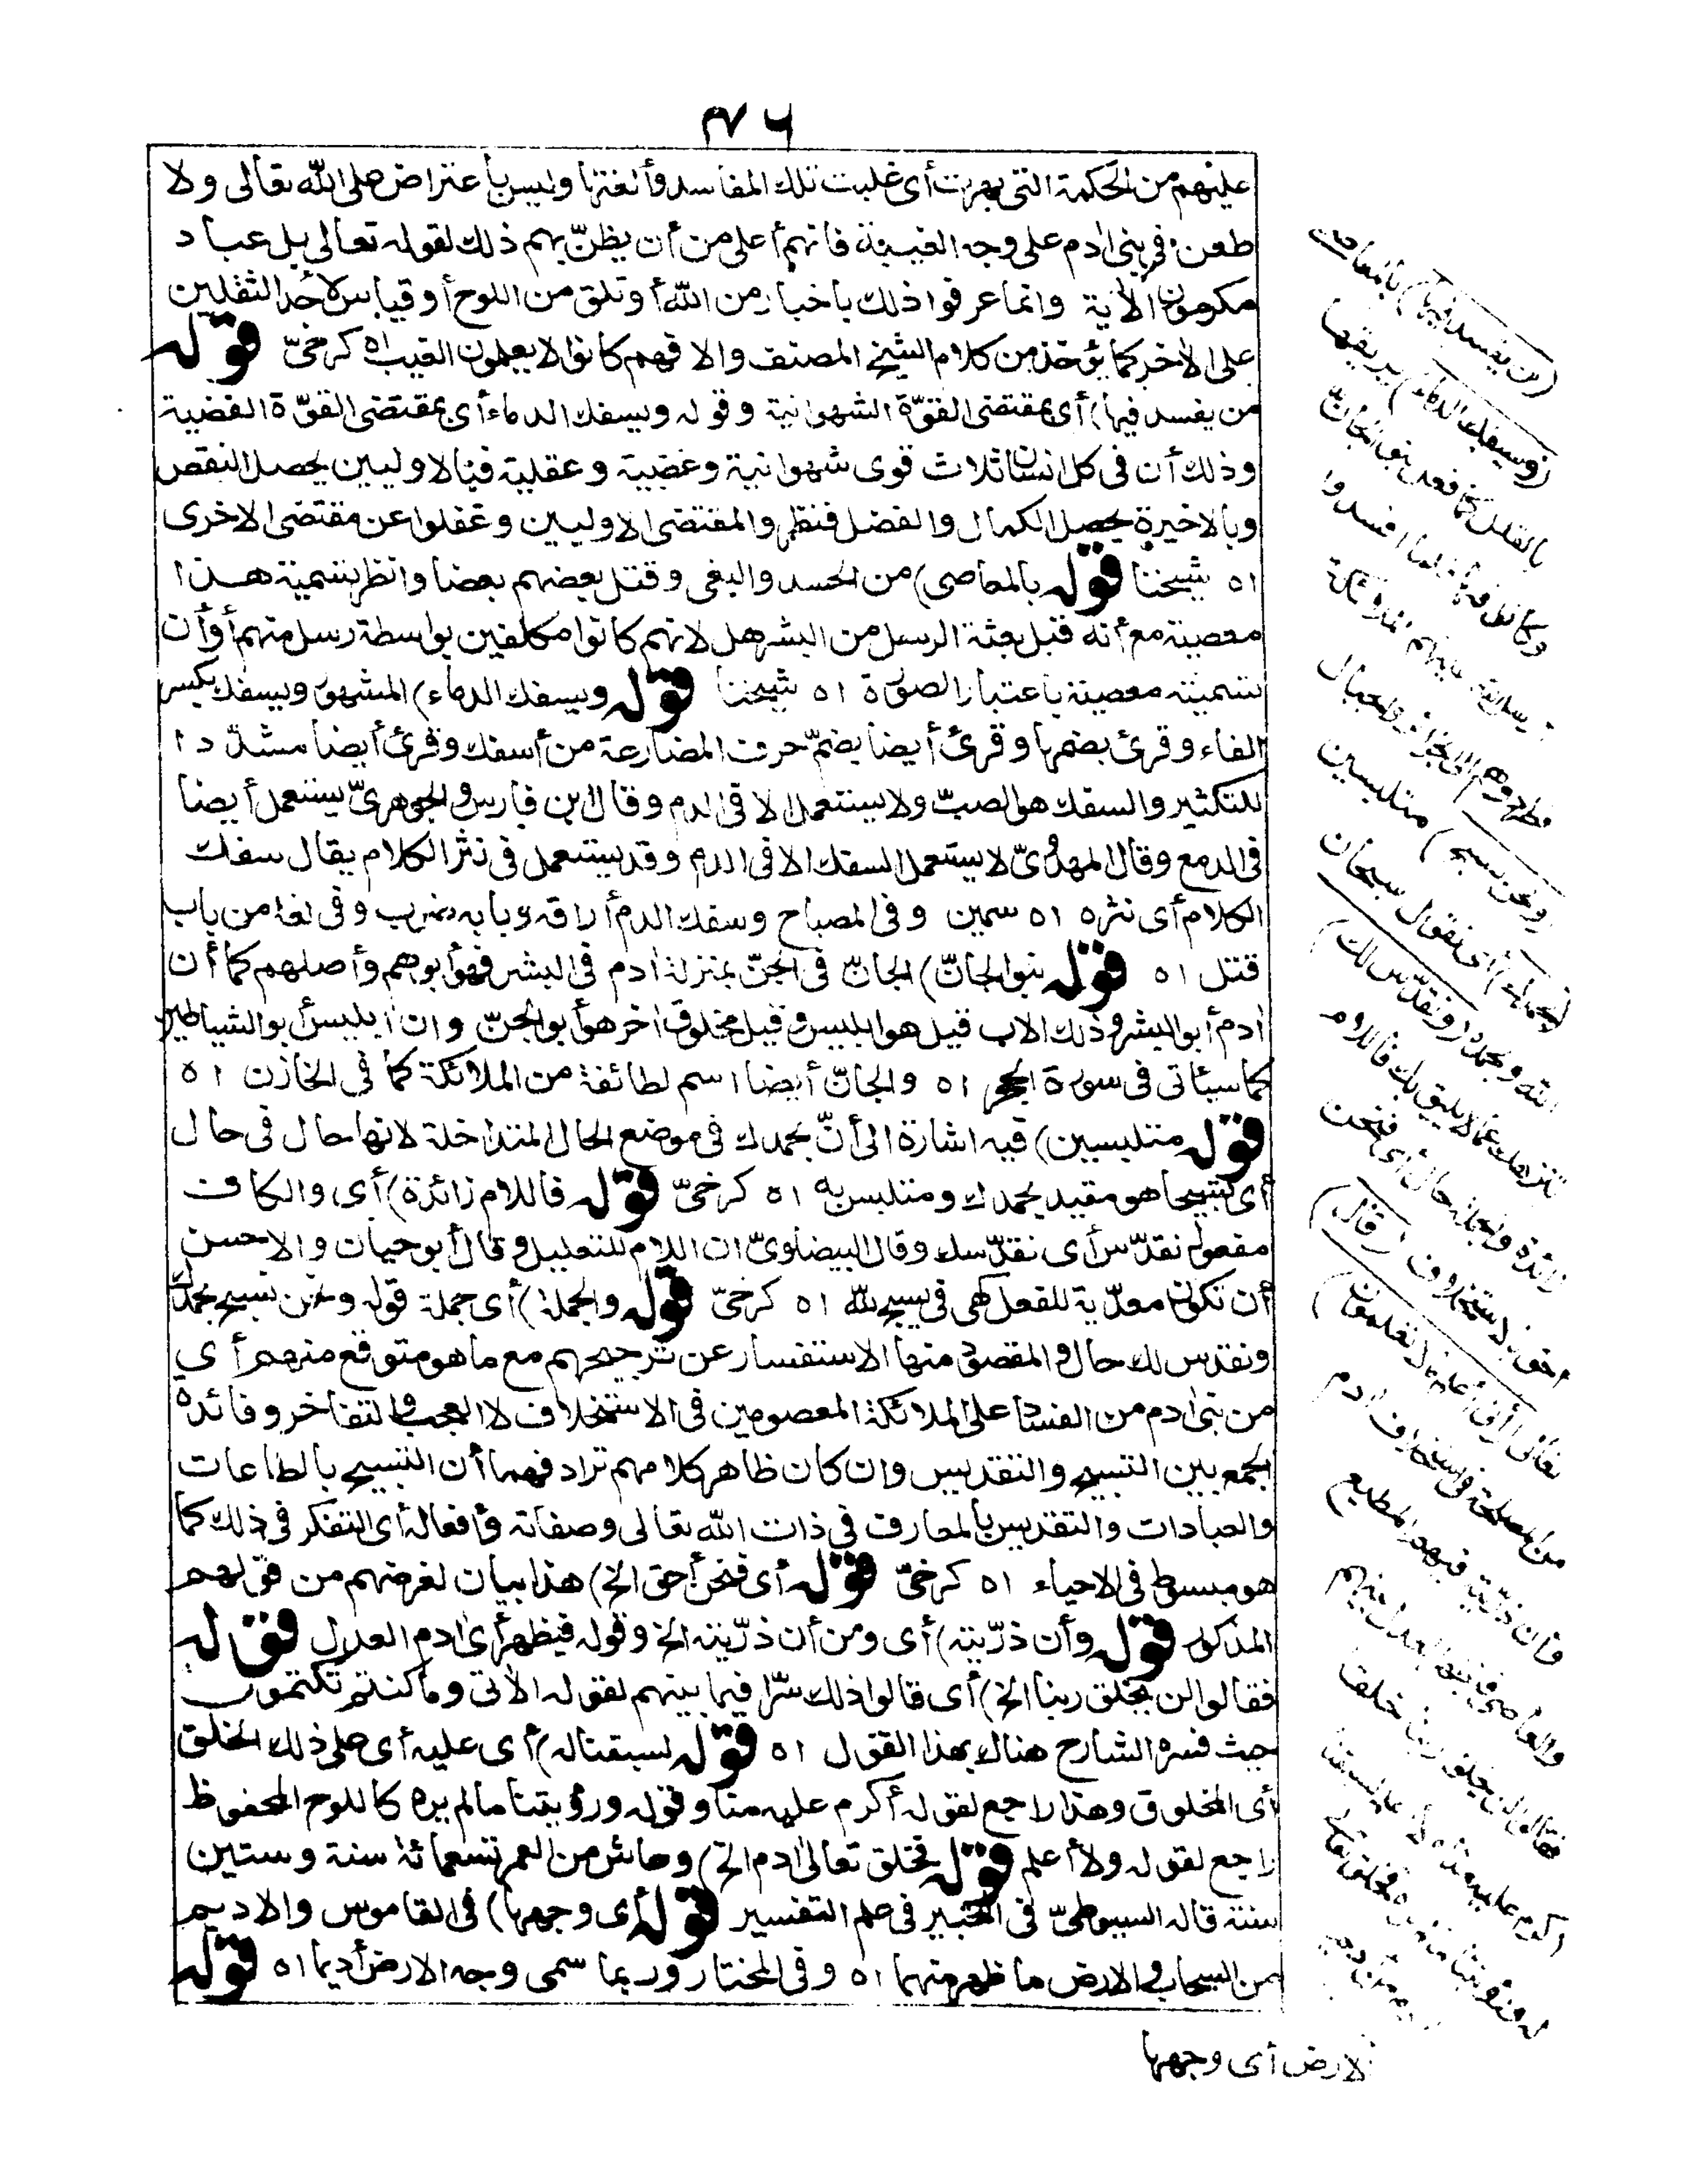 ٣٧٦
عليهم من الحكمة التى بهرت أى غلبت تلك المفاسد وألغتها وليس باعتراض على الله تعالى ولا
طعن فى بنى ادم على وجه الغيبة فانهم أعلى من أن يظنّ بهم ذلك لقوله تعالى بل عباد
مكرمون الأية وانما عرفوا ذلك باخبار من الله أو تلق من اللوح أو قياس لاحد الثقلين
على الأخر كما يؤخذ من كلام الشيخ المصنف والا فهم كانوا لا يعلمون الغيب اه كرخىّ قوله
من يفسد فيها) أى بمقتضى القوّة الشهوانية وقوله ويسفك الدماء أى بمقتضى القوّة الغضبية
وذلك أن فى كل انسان ثلاث قوى شهوانية وغضبية وعقلية فبالاوليين يحصل النقص
وبالاخيرة يحصل الكمال والفضل فنظروا لمقتضى الاوليين وغفلوا عن مقتضى الاخرى
اه شيخنا قوله بالمعاصى) من الحسد والبغى وقتل بعضهم بعضا وانظر تسمية هذا
معصية مع أنه قبل بعثة الرسل من البشر هل لانهم كانوا مكلفين بواسطة رسل منهم أو أن
تسميته معصية باعتبار الصورة اه شيخنا قوله ويسفك الدماء) المشهور ويسفك بكسر
الفاء وقرئ بضمها وقرئ أيضا بضمّ حرف المضارعة من أسفك وقرئ أيضا مشدّدا
للتكثير والسفك هو الصبّ ولا يستعمل الا فى الدم وقال ابن فارس والجوهرىّ يستعمل أيضا
فى الدمع وقال المهدوىّ لا يستعمل السفك الا فى الدم وقد يستعمل فى نثر الكلام يقال سفك
الكلام أى نثره اه سمين وفى المصباح وسفك الدم أراقه وبابه ضرب وفى لغة من باب
قتل اه قوله بنو الجانّ) الجانّ فى الجنّ بمنزلة ادم فى البشر فهو أبوهم وأصلهم كما أن
ادم أبو البشر وذلك الاب قيل هو ابليس وقيل مخلوق اخر هو أبو الجنّ وان ابليس أبو الشياطين
كما سيأتى فى سورة الحجر اه والجانّ أيضا اسم لطائفة من الملائكة كما فى الخازن اه
قوله متلبسين) فيه اشارة الى أنّ بحمدك فى موضع الحال المتداخلة لانها حال فى حال
أى تسبيحا هو مقيد بحمدك ومتلبس به اه كرخىّ قوله فاللام زائدة) أى والكاف
مفعول نقدّس أى نقدّسك وقال البيضاوىّ ان اللام للتعليل وقال أبو حيان والاحسن
أن تكون معدّية للفعل كهى فى يسبح لله اه كرخىّ قوله والجملة) أى جملة قوله ونحن نسبح بحمدك
ونقدس لك حال والمقصود منها الاستفسار عن ترجيحهم مع ما هو متوقع منهم أي
من بنى ادم من الفساد على الملائكة المعصومين فى الاستخلاف لا العجب والتفاخر وفائدة
الجمع بين التسبيح والتقديس وان كان ظاهر كلامهم ترادفهما أن التسبيح بالطاعات
والعبادات والتقديس بالمعارف فى ذات الله تعالى وصفاته وأفعاله أى التفكر فى ذلك كما
هو مبسوط فى الاحياء اه كرخىّ قوله أى فنحن أحق الخ) هذا بيان لغرضهم من قولهم
المذكور قوله وأن ذرّيته) أى ومن أن ذرّيته الخ وقوله فيظهر أى ادم العدل قوله
فقالوا لن يخلق ربنا الخ) أى قالوا ذلك سرّا فيما بينهم لقوله الأتى وما كنتم تكتمون
حيث فسره الشارح هناك بهذا القول اه قوله لسبقنا له) أى عليه أى على ذلك الخلق
أى المخلوق وهذا راجع لقوله أكرم عليه منا وقوله ورؤيتنا ما لم يره كاللوح المحفوظ
راجع لقوله ولا أعلم قوله فخلق تعالى ادم الخ) وعاش من العمر تسعمائة سنة وستين
سنة قاله السيوطىّ فى التحبير فى علم التفسير قوله أى وجهها) فى القاموس والاديم
من السحاب والارض ما ظهر منهما اه وفى المختار وربما سمى وجه الارض أديما اه قوله
(من يفسد فيها) بالمعاصى
(ويسفك الدماء) يريقها
بالقتل كما فعل بنو الجانّ
وكانوا فيها فلما افسدوا
ارسل الله عليهم الملائكة
فطردوهم الى الجزائر والجبال
(ونحن نسبح) متلبسين
(بحمدك) أى نقول سبحان
الله وبحمده (ونقدّس لك)
ننزهك عما لا يليق بك فاللام
زائدة والجملة حال أى فنحن
احق بالاستخلاف (قال)
تعالى (انى أعلم ما لا تعلمون)
من المصلحة فى استخلاف ادم
وان ذرّيته فيهم المطيع
والعاصى فيظهر العدل بينهم
فقالوا لن يخلق ربنا خلقا
اكرم عليه منا ولا أعلم لسبقنا
له ورؤيتنا ما لم يره فخلق تعالى
ادم من اديم
الارض أى وجهها